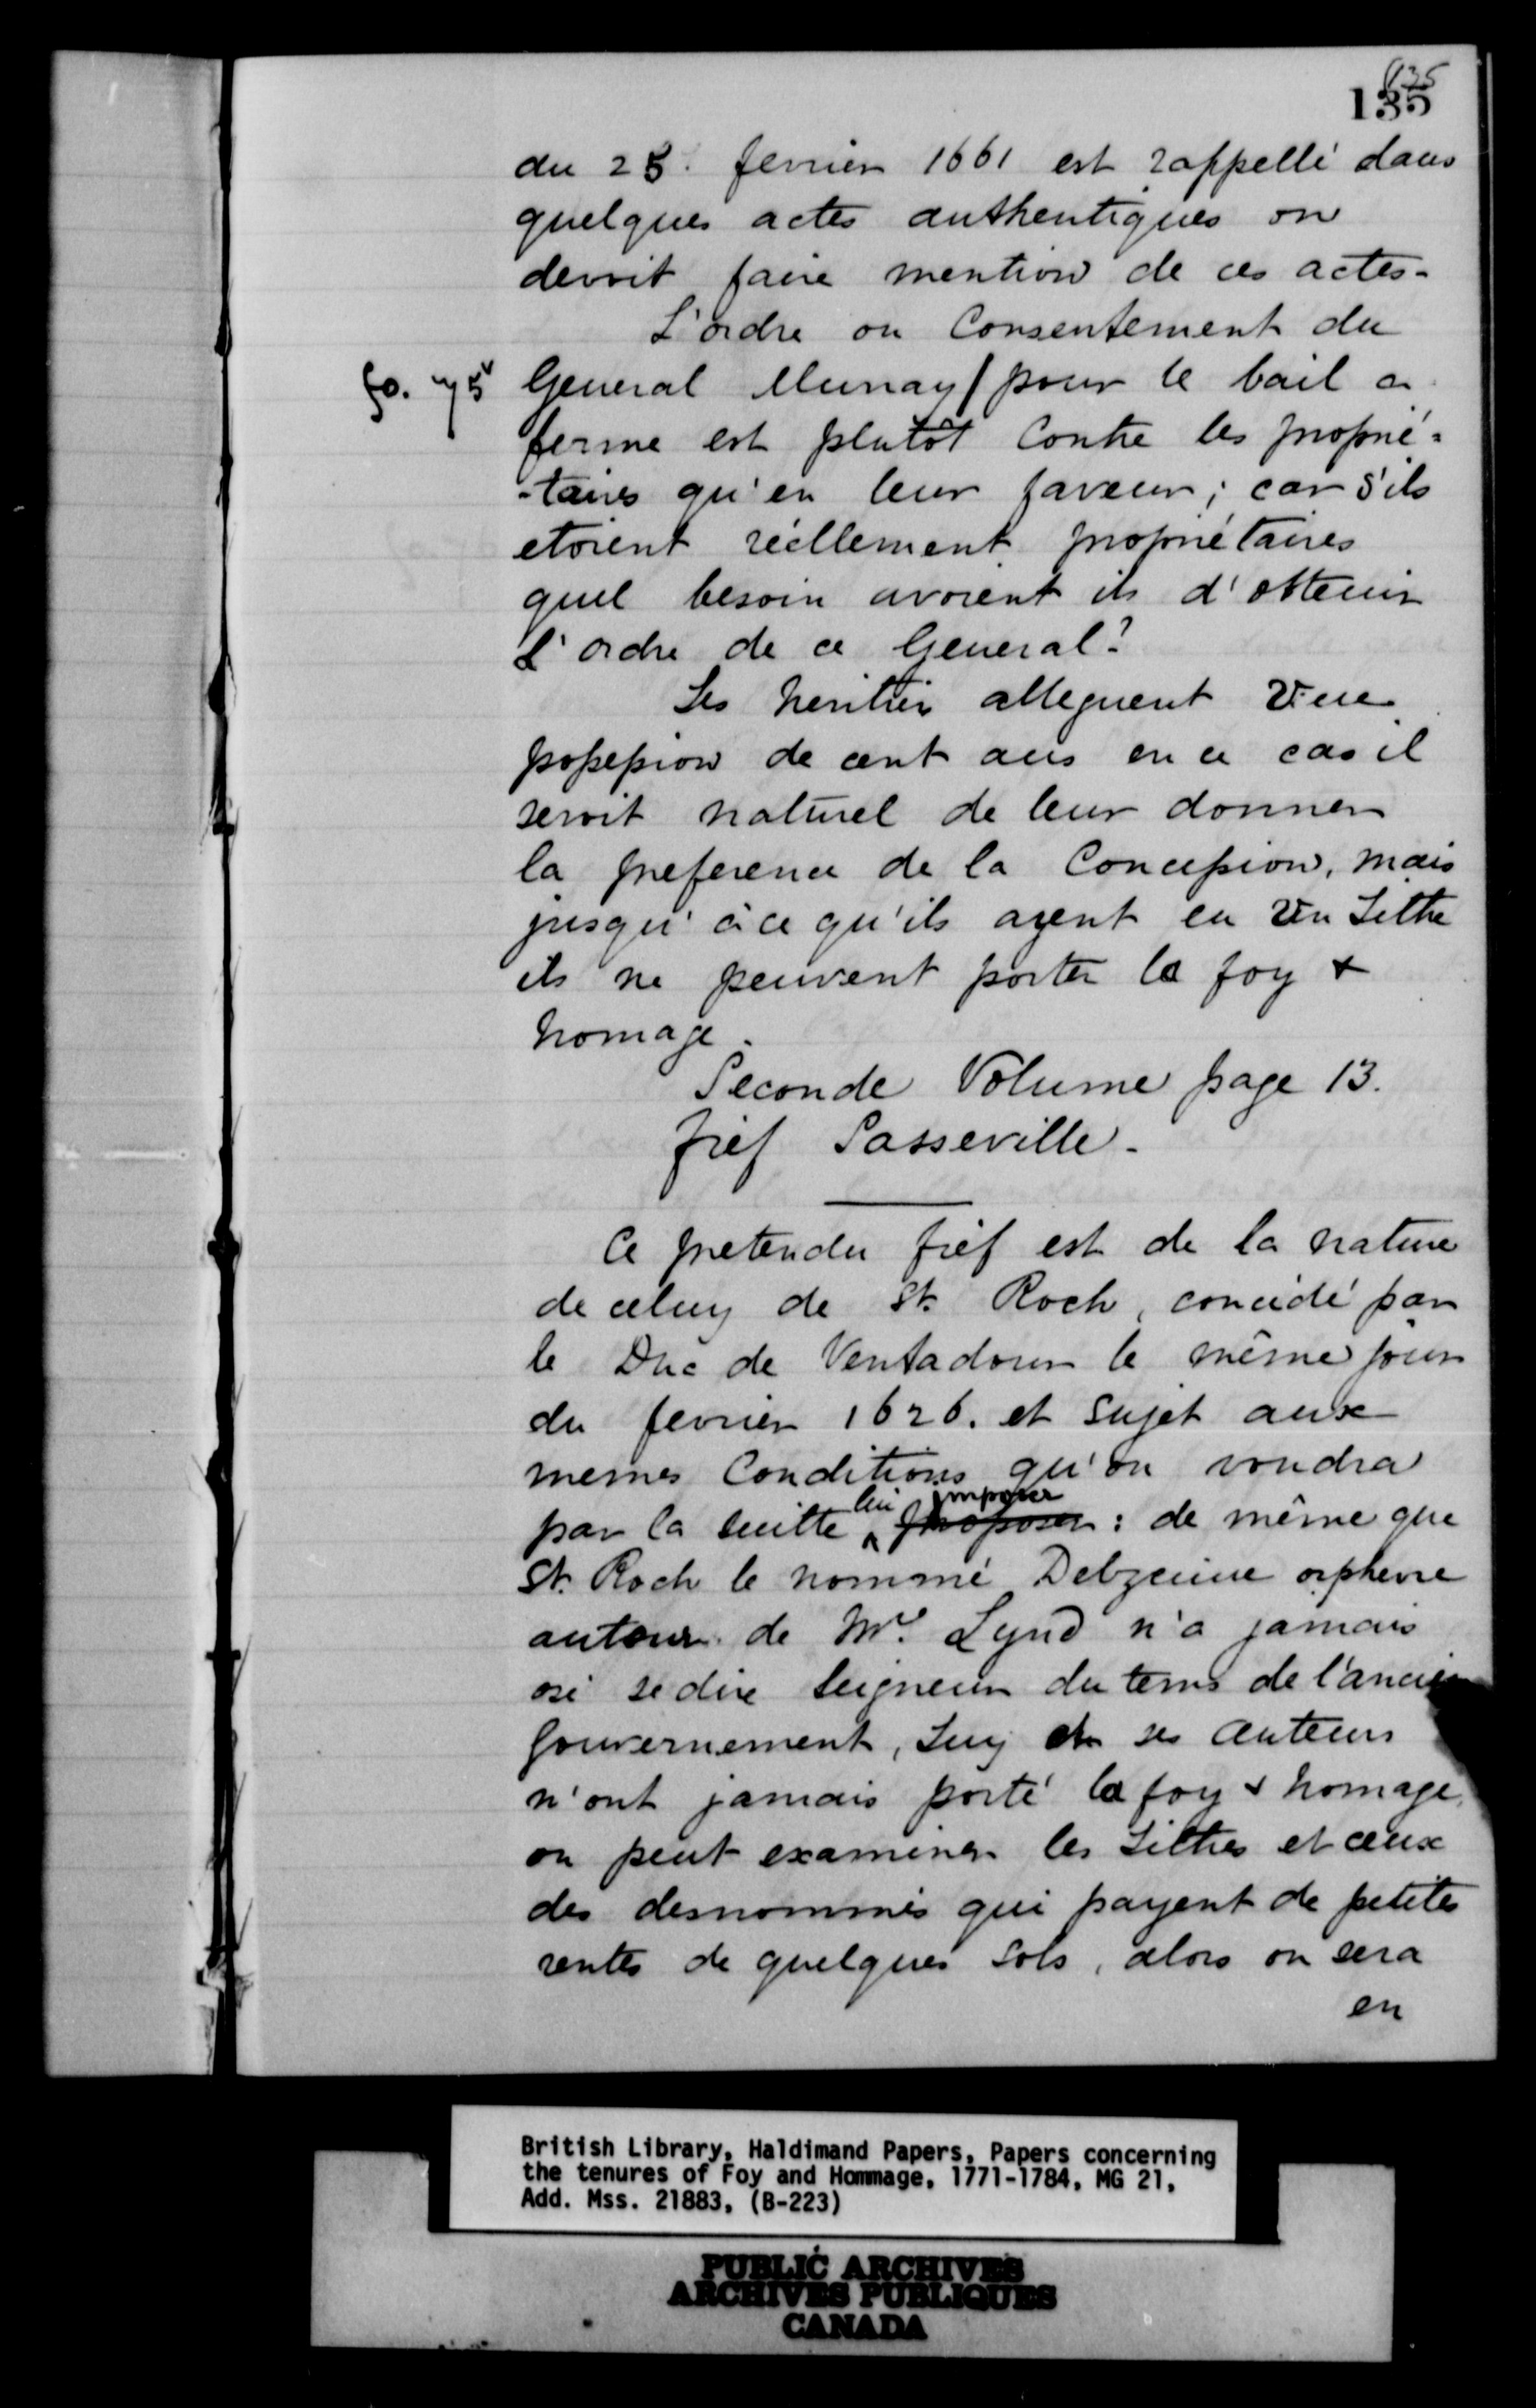 135
135
du 28. fevrier 1661 est rappellé dans
quelques actes authentiques on
devoit faire mention de ces actes-
L'ordre ou Consentement du
fo. 75v General Murray / pour le bail a
ferme est plutôt Contre les proprié=
-taires qu'en leur faveur; car s'ils
etoient réellement propriétaires
quel besoin avoient ils d'obtenir
L'ordre de ce General?
Les heritier alleguent Une
possession de cent ans en ce cas il
seroit naturel de leur donner
la preference de la Concession, mais
jusqu'à ce qu'ils ayent eu Un Tittre
ils ne peuvent porter la foy &
homage.
Seconde Volume page 13.
fief Sasseville-
Ce pretendu fief est de la nature
de celuy de St. Roch, concédé par
le Duc de Ventadour le même jour
du fevrier 1626. et sujet aux
memes Conditions qu'on voudra
par la suitte lui imposer proposer: de même que
St. Roch le nommé orphevre
auteur de Mr. Lynd n'a jamais
osé se dire Seigneur du tems de l'ancien
Gouvernement, Luy et ses Auteurs
n'ont jamais porté la foy & homage,
on peut examiner les Tittres et ceux
des desnommés qui payent de petites
rentes de quelques sols, alors on sera
en
British Library, Haldimand Papers, Papers concerning
the tenures of Foy and Hommage, 1771-1784, MG 21,
Add. Mss. 21883, (B-223)
PUBLIC ARCHIVES
ARCHIVES PUBLIQUES
CANADA